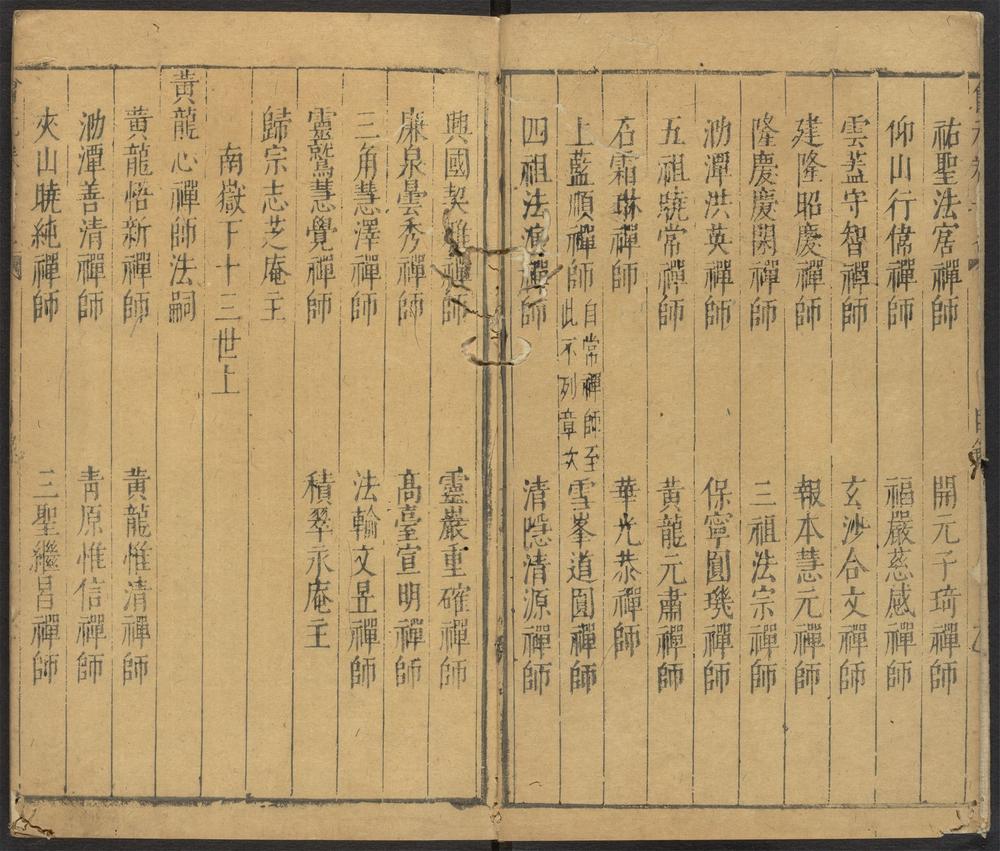 祐聖法𡧯禪師 開元子琦禪師
仰山行偉禪師 福嚴慈感禪師
雲蓋守智禪師 玄沙合文禪師
建隆昭慶禪師 報本慧元禪師
隆慶慶閑禪師 三祖法宗禪師
泐潭洪英禪師 保寧圓璣禪師
五祖曉常禪師 黃龍元肅禪師
石霜琳禪師 華光恭禪師
上藍順禪師 自常禪師至此不列章次 雪峯道圓禪師
四祖法演禪師 清隱清源禪師
興國契雅禪師 靈巖重確禪師
廉泉曇秀禪師 高臺宣明禪師
三角慧澤禪師 法輪文昱禪師
靈鷲慧覺禪師 積翠永庵主
歸宗志芝庵主
南嶽下十三世上
黃龍心禪師法嗣
黃龍悟新禪師 黃龍惟清禪師
泐潭善清禪師 青原惟信禪師
夾山曉純禪師 三聖繼昌禪師